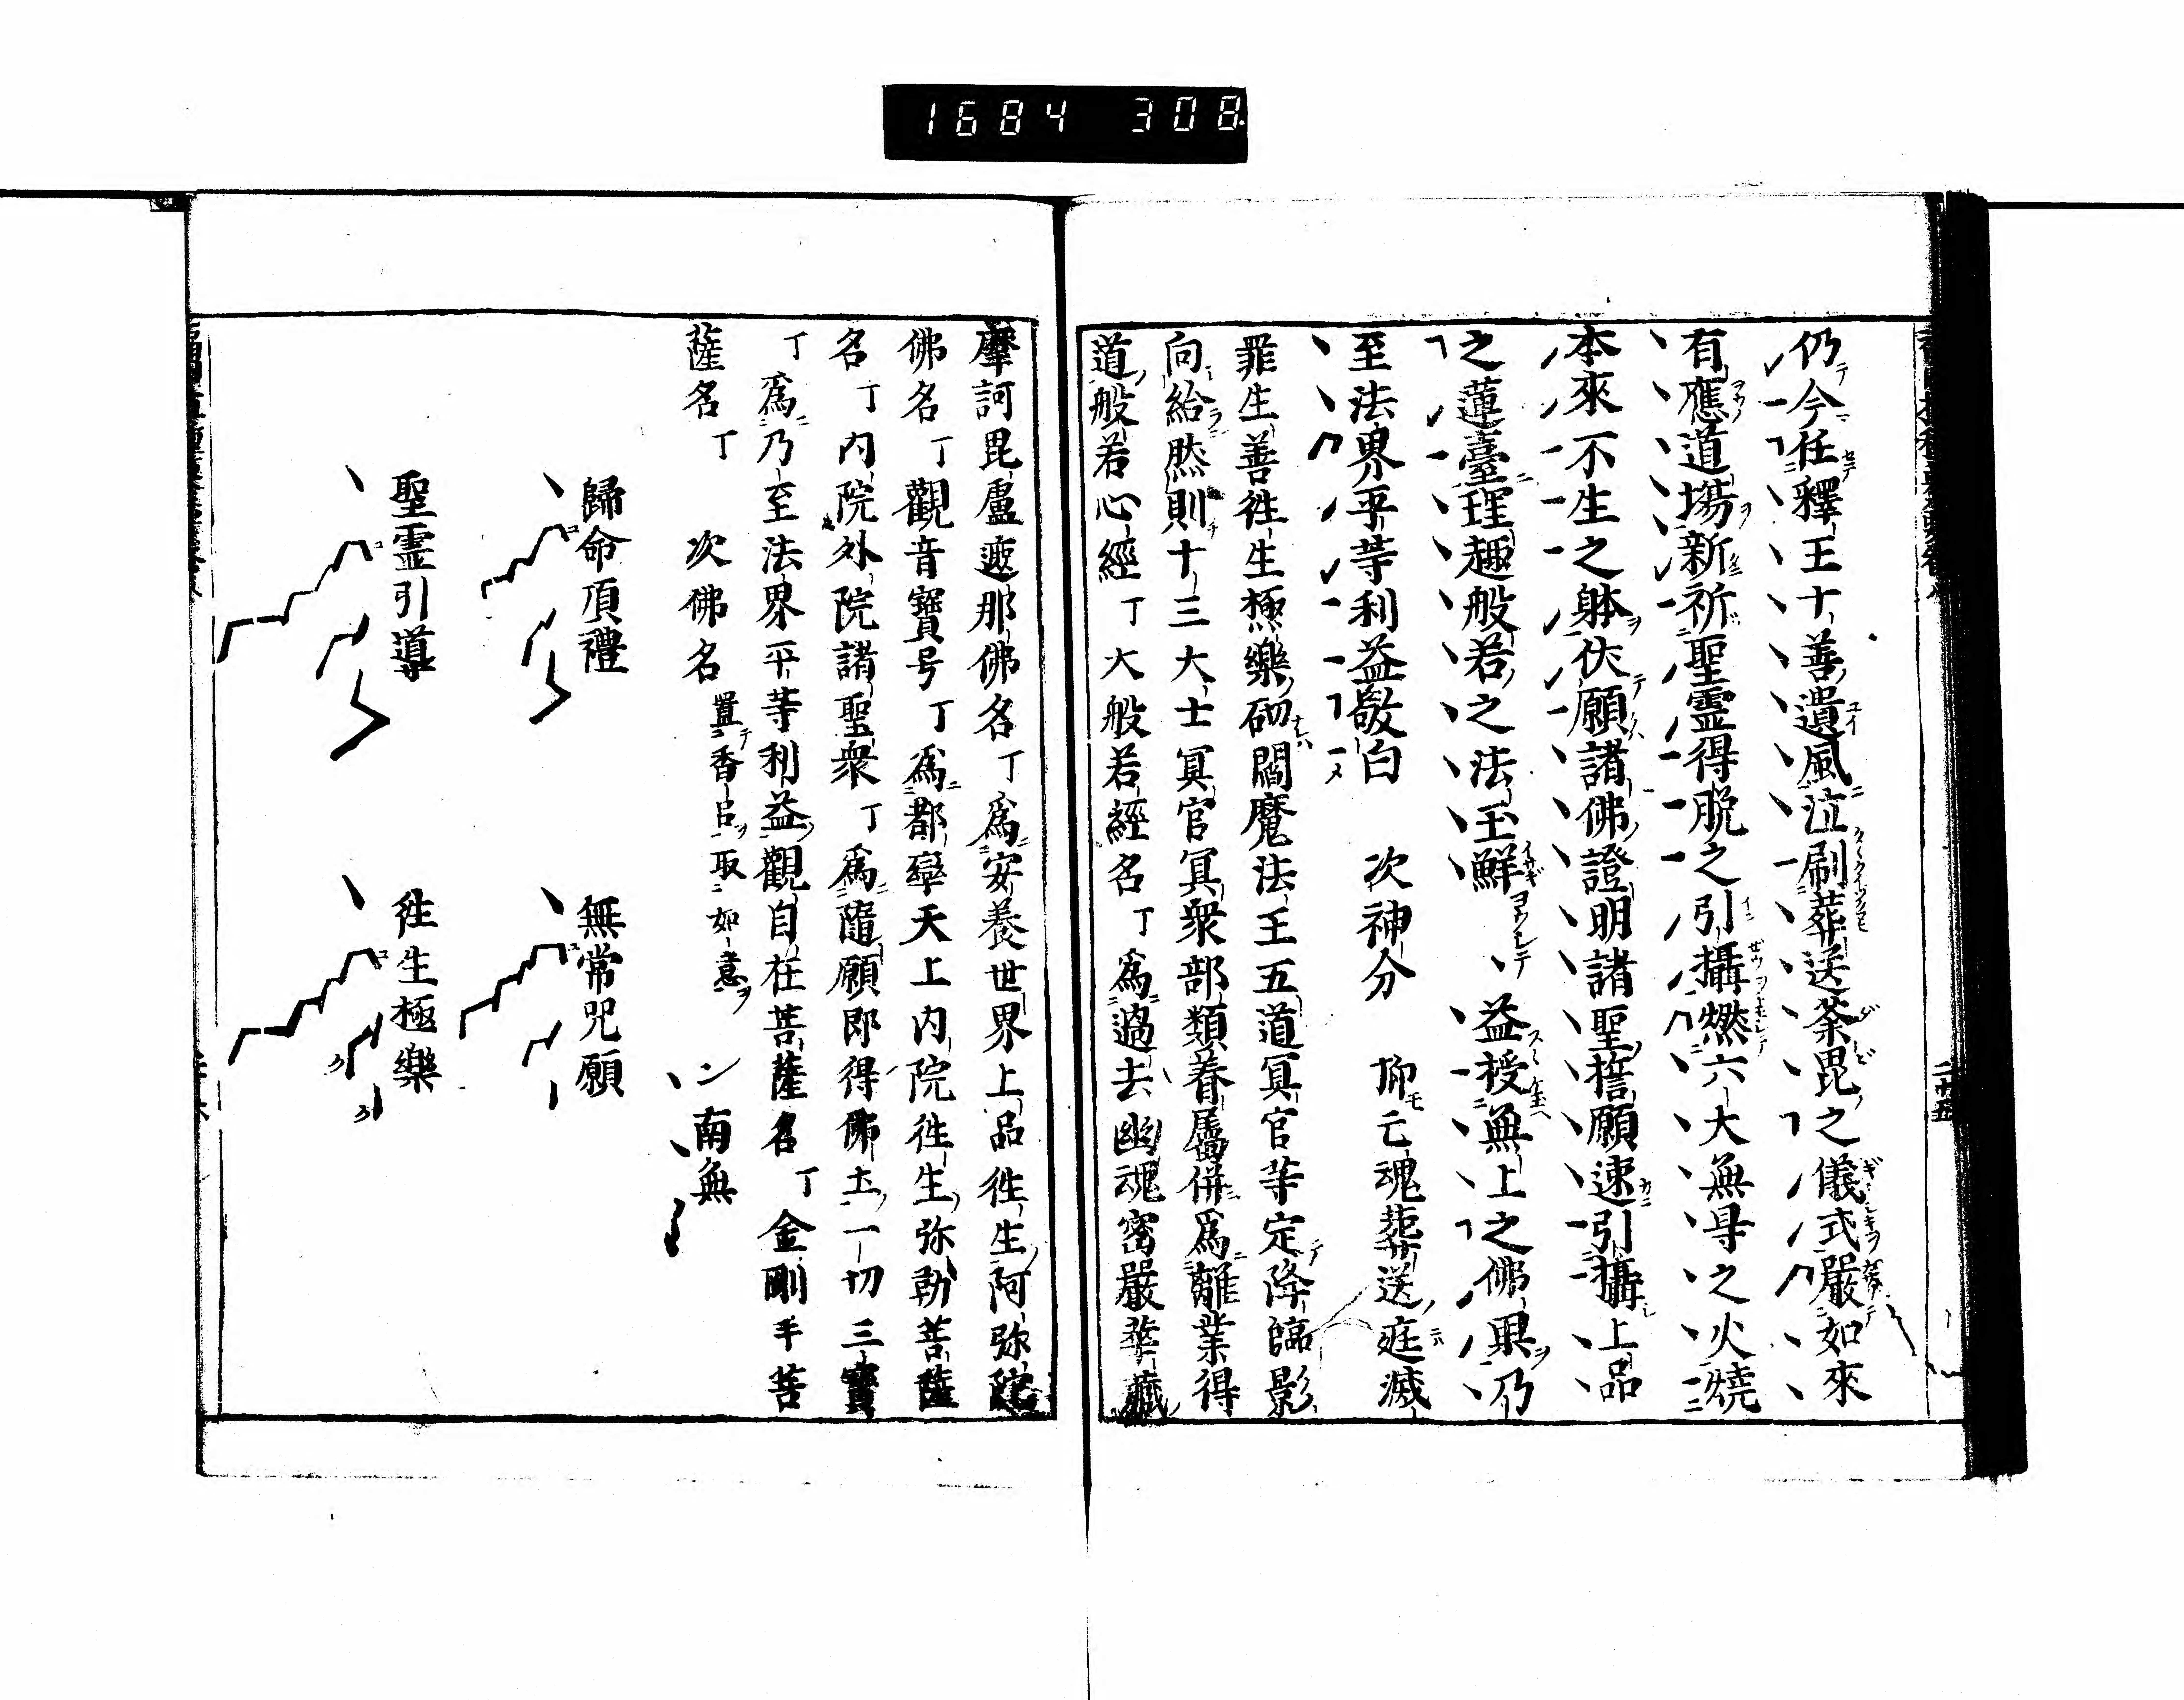 1684 308
仍今任釋王十善遺風泣刷葬送荼毘之儀式嚴如來
有應道場新祈聖霊得脱之引攝燃六大無㝵之火燒
本來不生之躰伏願諸佛證明諸聖誓願速引攝上品
之蓮臺理趣般若之法玉鮮益授無上之佛果乃
至法界平等利益敬白 次神分 抑亡魂葬送庭滅
罪生善徃生極樂砌閻魔法王五道冥官等定降臨影
向給然則十三大士冥官冥衆部類眷屬併爲離業得
道般若心經丁大般若經名丁爲過去幽魂密嚴華藏
摩訶毘盧遮那佛名丁爲安養世界上品徃生阿弥陀
佛名丁觀音寳号丁爲都率天上内院徃生弥勒菩薩
名丁内院外院諸聖衆丁爲隨願即得佛土一切三寳
丁爲乃至法界平等利益觀自在菩薩名丁金剛手菩
薩名丁 次佛名 置香呂取如意 南無
歸命頂禮 無常咒願
聖霊引導 徃生極樂